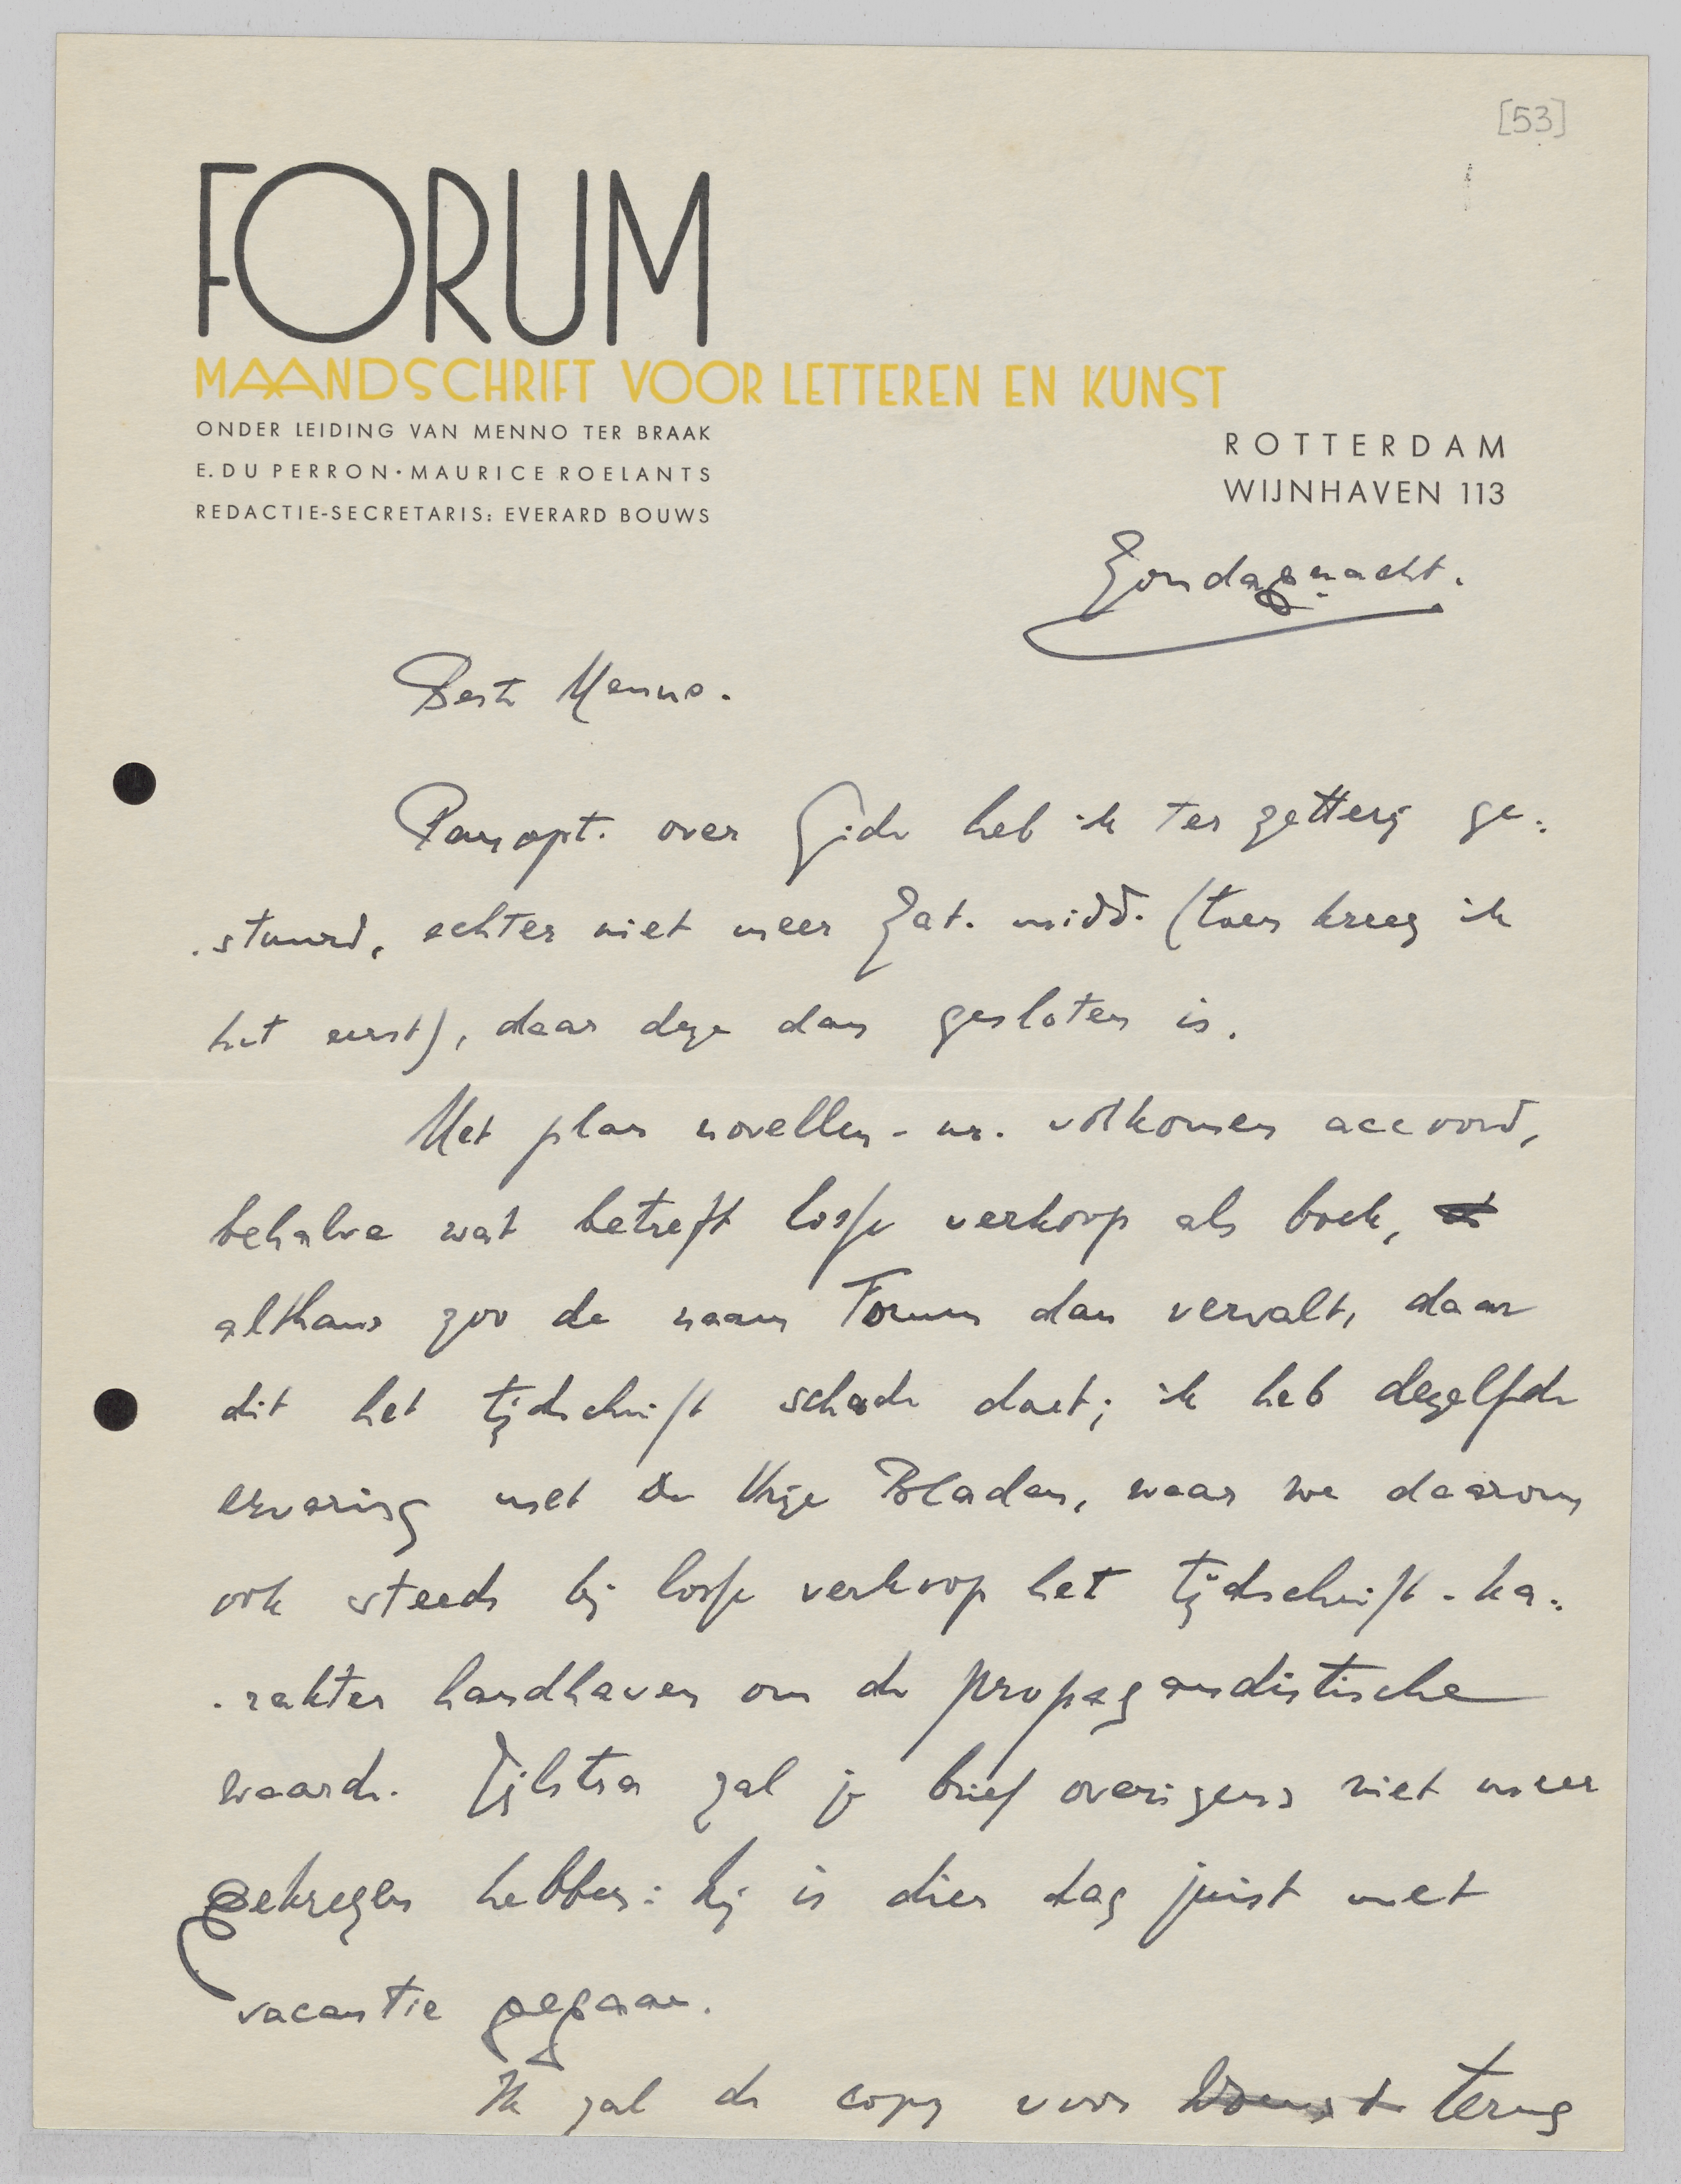 [53]
FORUM
MAANDSCHRIFT VOOR LETTEREN EN KUNST
ONDER LEIDING VAN MENNO TER BRAAK
E. DU PERRON · MAURICE ROELANTS
REDACTIE-SECRETARIS: EVERARD BOUWS
ROTTERDAM
WIJNHAVEN 113
Zondagnacht.
Beste Menno.
Panopt. over Gide heb ik ter zetterij ge-
-stuurd, echter niet meer Zat. midd. (toen kreeg ik
het eerst), daar deze dan gesloten is.
Met plan novellen-nr. volkomen accoord,
behalve wat betreft losse verkoop als boek,
althans zoo de naam Forum dan vervalt, daar
dit het tijdschrift schade doet; ik heb dezelfde
ervaring met De Vrije Bladen, waar we daarom
ook steeds bij losse verkoop het tijdschrift-ka-
-rakter handhaven om de propagandistische
waarde. Zijlstra zal je brief overigens niet meer
gekregen hebben: hij is dien dag juist met
vacantie gegaan.
Ik zal de copy voor terug